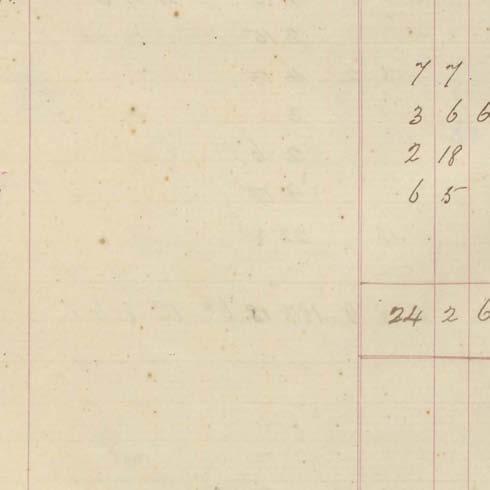 7 7
3 6 6
2 18
6 5
24 2 6